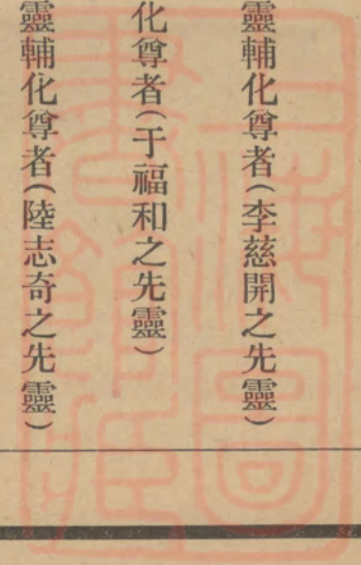 靈輔化尊者（李慈開之先靈）
化尊者（于福和之先靈）
靈輔化尊者（陸志奇之先靈）